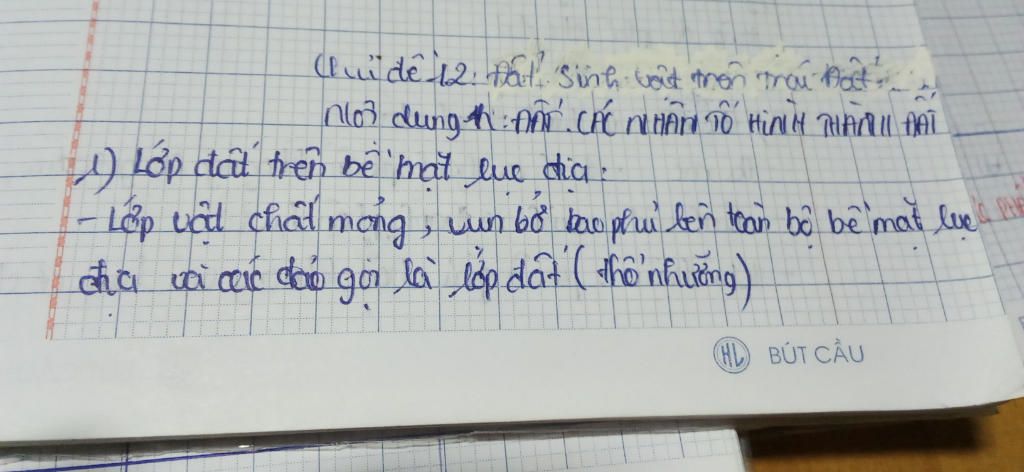 Chủ đề 12: Đất. Sinh vật trên trái Đất.
Nội dung 1: ĐẤT. CÁC NHÂN TỐ HÌNH THÀNH ĐẤT
1) Lớp đất trên bề mặt lục địa:
- Lớp vật chất mỏng, vụn bở bao phủ lên toàn bộ bề mặt lục
địa và các đảo gọi là lớp đất (thổ nhưỡng)
HL BÚT CẦU